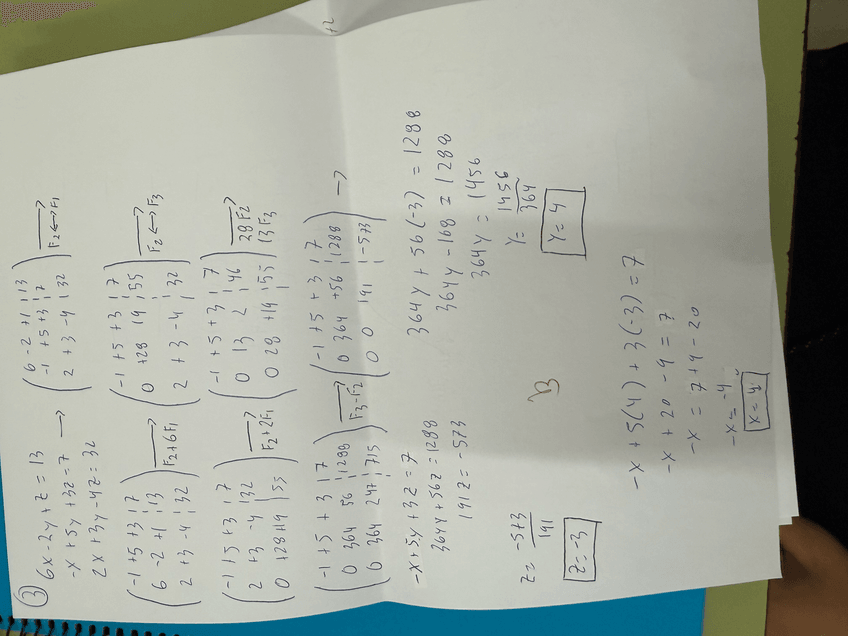 ③ 6x-2y+z=13
-x+5y+3z=7 →
2x+3y-4z=32
( 6 -2 +1 ¦ 13
-1 +5 +3 ¦ 7
2 +3 -4 ¦ 32 ) → F2↔F1
( -1 +5 +3 ¦ 7
6 -2 +1 ¦ 13
2 +3 -4 ¦ 32 ) → F2+6F1
( -1 +5 +3 ¦ 7
0 +28 19 ¦ 55
2 +3 -4 ¦ 32 ) → F2↔F3
( -1 +5 +3 ¦ 7
2 +3 -4 ¦ 32
0 +28 +19 ¦ 55 ) → F2+2F1
( -1 +5 +3 ¦ 7
0 13 2 ¦ 46
0 28 +19 ¦ 55 ) → 28F2 13F3
( -1 +5 +3 ¦ 7
0 364 56 ¦ 1288
0 364 247 ¦ 715 ) → F3-F2
( -1 +5 +3 ¦ 7
0 364 +56 ¦ 1288
0 0 191 ¦ -573 ) →
-x+5y+3z=7
364y+56z=1288
191z=-573
z= -573/191
z=-3
364y+56(-3)=1288
364y-168=1288
364y=1456
y= 1456/364
y=4
B
-x+5(4)+3(-3)=7
-x+20-9=7
-x=7+9-20
-x=-4
x=4
+2